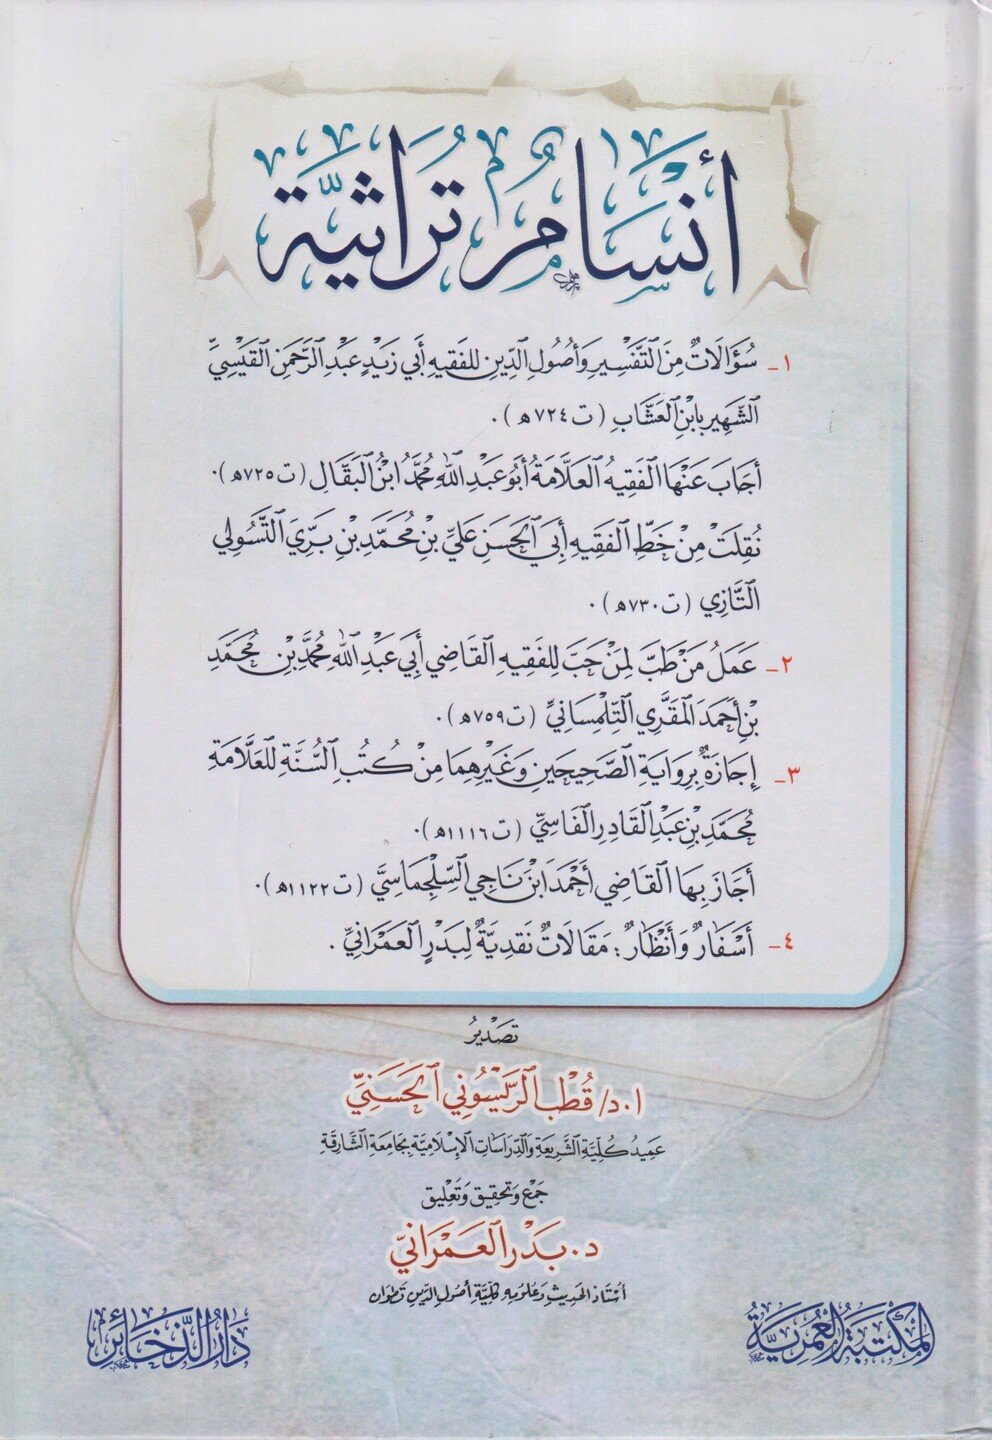 أَنْسَامٌ تُرَاثِيَّة
١- سُؤَالَاتٌ مِنَ التَّفْسِيرِ وَأُصُولِ الدِّينِ لِلفَقِيهِ أَبِي زَيْدٍ عَبْدِ الرَّحْمَنِ القَيْسِيِّ
الشَّهِيرِ بِابْنِ العَشَّابِ (ت ٧٢٤هـ).
أَجَابَ عَنْهَا الفَقِيهُ العَلَّامَةُ أَبُو عَبْدِ اللهِ مُحَمَّدُ ابْنُ البَقَّالِ (ت ٧٢٥هـ).
نُقِلَتْ مِنْ خَطِّ الفَقِيهِ أَبِي الحَسَنِ عَلِيِّ بْنِ مُحَمَّدِ بْنِ بَرِّيِّ التَّسُولِي
التَّازِي (ت ٧٣٠هـ).
٢- عَمَلُ مَنْ طَبَّ لِمَنْ حَبَّ لِلفَقِيهِ القَاضِي أَبِي عَبْدِ اللهِ مُحَمَّدِ بْنِ مُحَمَّدِ
بْنِ أَحْمَدَ المَقَّرِي التِّلِمْسَانِيِّ (ت ٧٥٩هـ).
٣- إِجَازَةٌ بِرِوَايَةِ الصَّحِيحَيْنِ وَغَيْرِهِمَا مِنْ كُتُبِ السُّنَّةِ لِلعَلَّامَةِ
مُحَمَّدِ بْنِ عَبْدِ القَادِرِ الفَاسِيِّ (ت ١١١٦هـ).
أَجَازَ بِهَا القَاضِي أَحْمَدَ ابْنَ نَاجِي السِّلِجْمَاسِيَّ (ت ١١٢٢هـ).
٤- أَسْفَارٌ وَأَنْظَارٌ: مَقَالَاتٌ نَقْدِيَّةٌ لِبَدْرٍ العَمْرَانِيِّ.
تَصْدِيرُ
ا.د/ قُطْب الرَّيْسُونِي الحَسَنِيِّ
عَمِيدُ كُلِّيَّةِ الشَّرِيعَةِ وَالدِّرَاسَاتِ الإِسْلَامِيَّةِ بِجَامِعَةِ الشَّارِقَةِ
جَمْع وَتَحْقِيق وَتَعْلِيق
د. بَدْر العَمْرَانِيِّ
أُسْتَاذ الحَدِيثِ وَعُلُومِهِ كُلِّيَّةِ أُصُولِ الدِّينِ تَطْوَان
المَكْتَبَةُ العُمَرِيَّةُ
دَارُ الذَّخَائِرِ